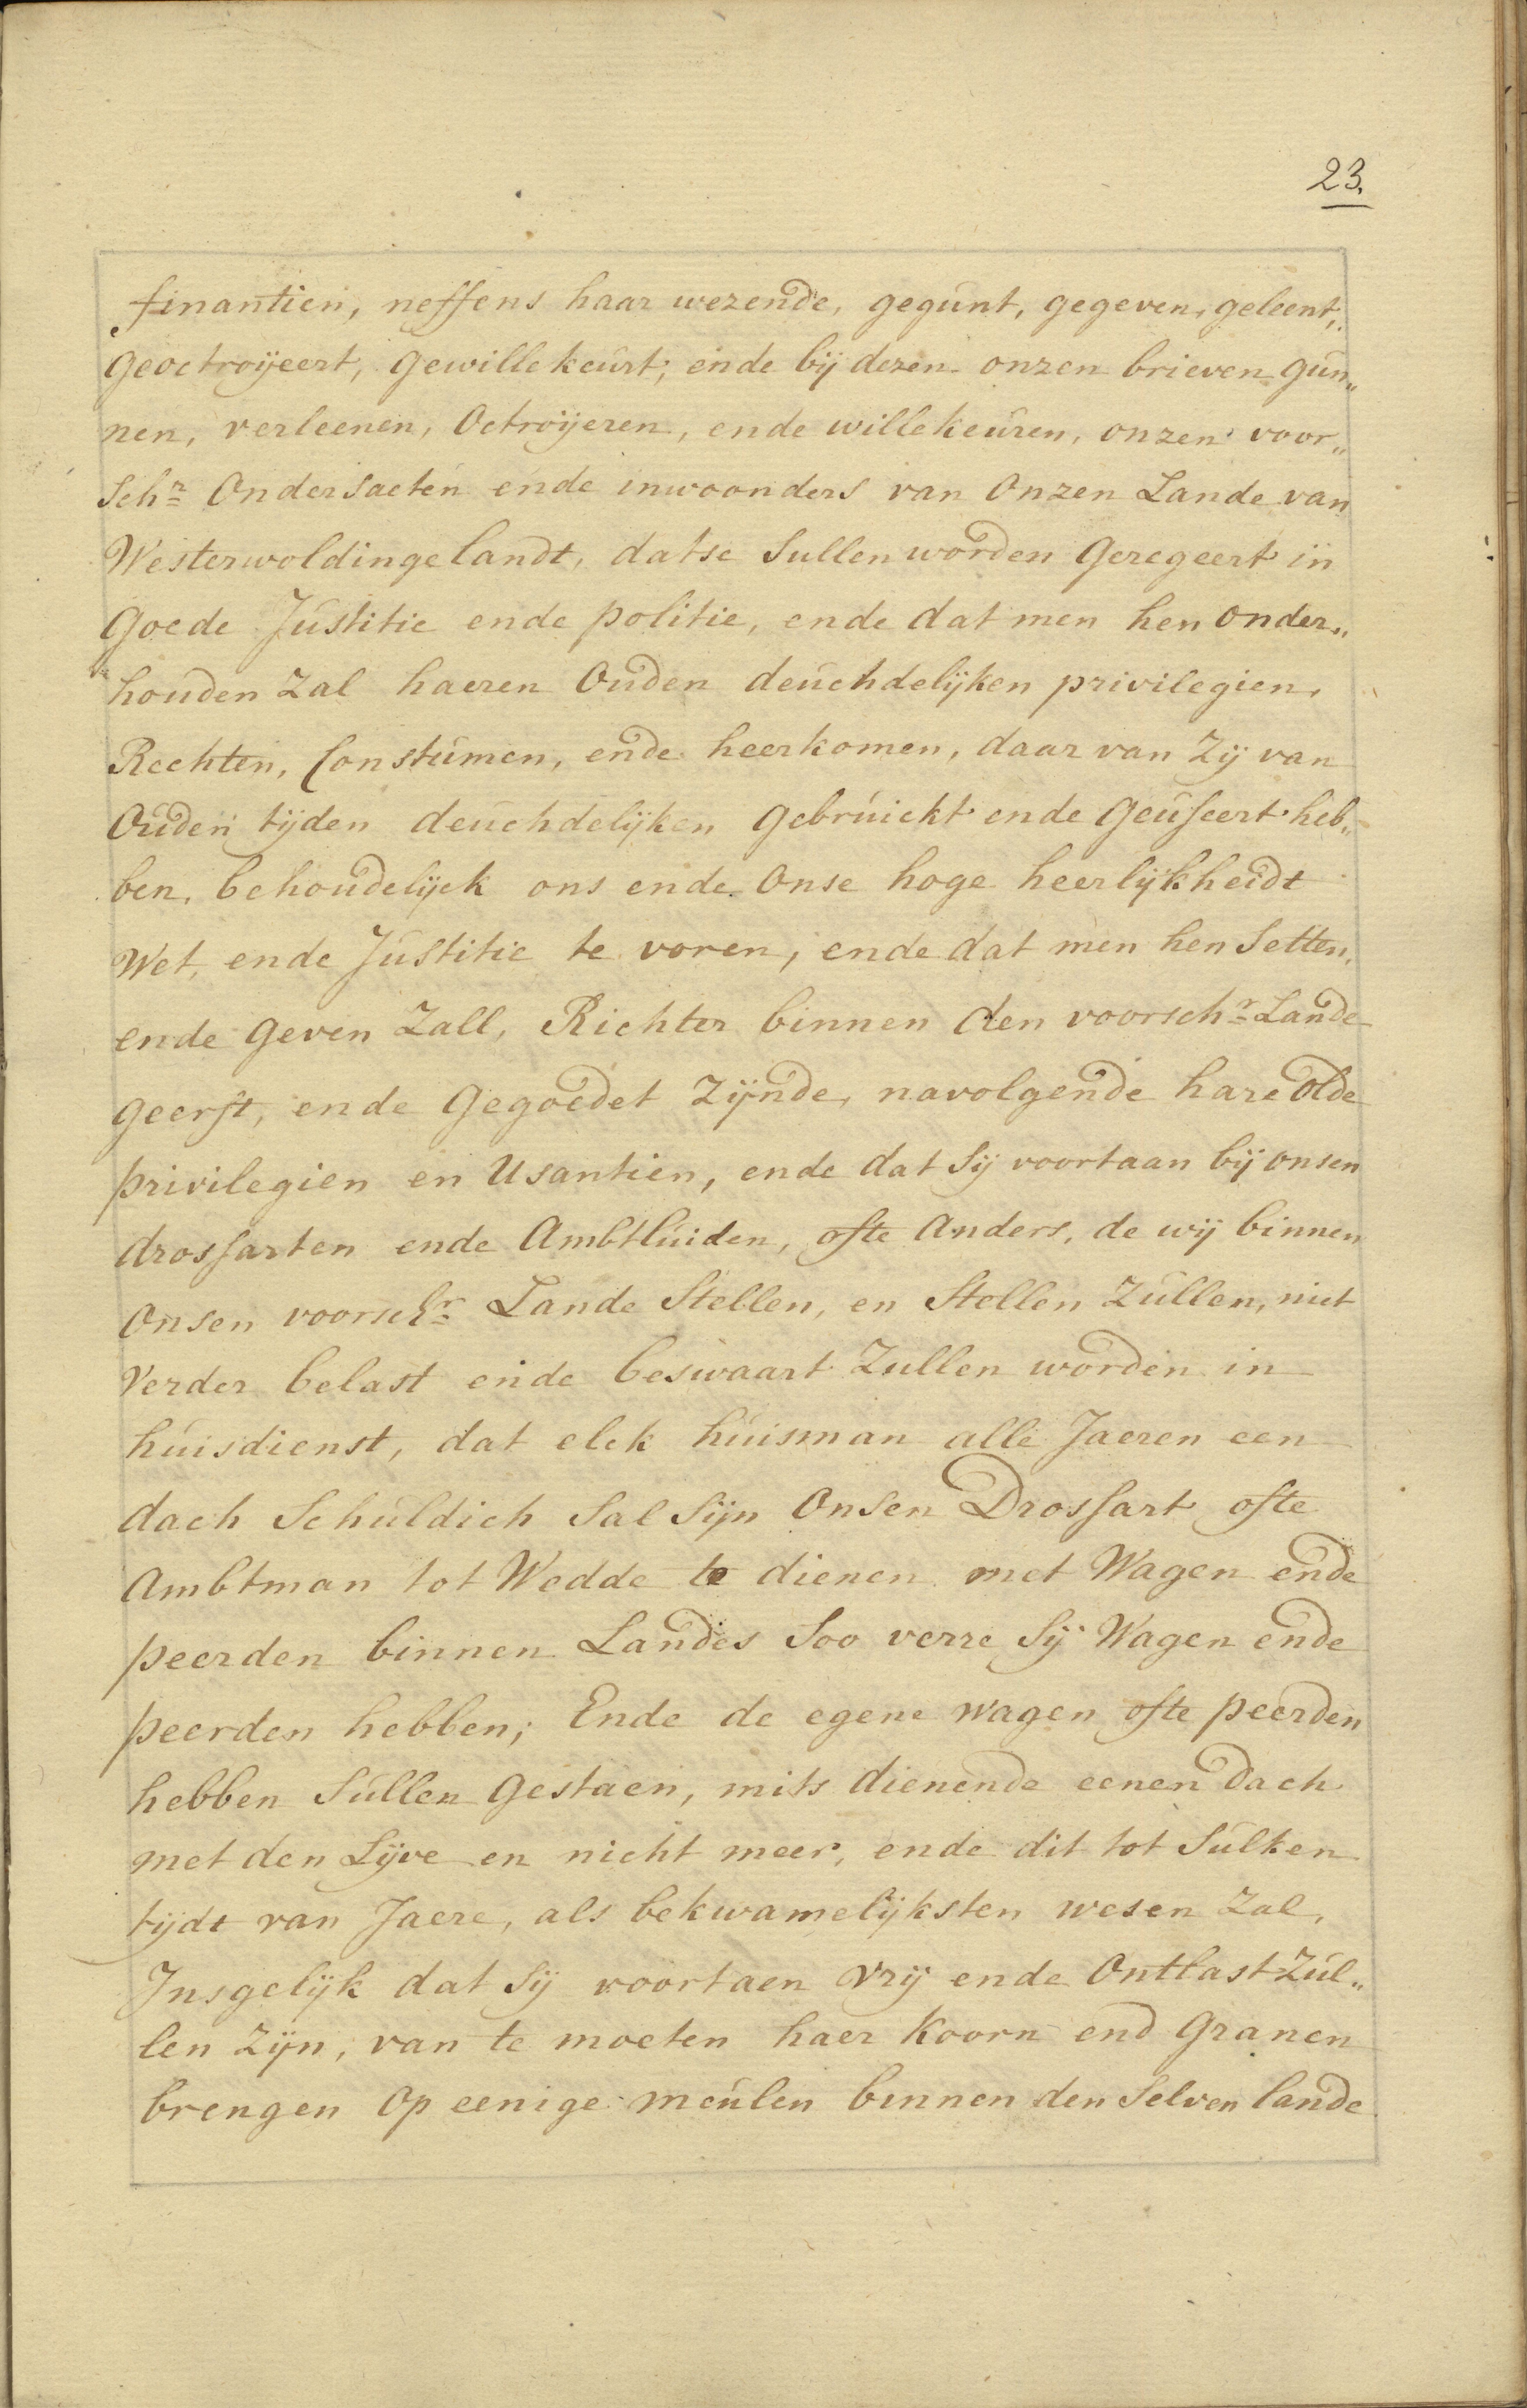 23.
finantien, neffens haar wezende, gegunt, gegeven, geleent,
geoctroijeert, gewillekeurt; ende bij dezen onzen brieven gun„
nen, verleenen, Octroijeren, ende willekeuren, onzen voor„
Schr Ondersaeten ende inwoonders van Onzen Lande van
Westerwoldingelandt, datse Sullen worden Geregeert in
Goede Justitie ende politie, ende dat men hen onder„
houden Zal haeren Ouden deuchdelijken privilegien,
Rechten, Constumen, ende heerkomen, daar van Zij van
Ouden tijden deuchdelijken Gebruickt ende Geuseert heb„
ben, behoudelijck ons ende Onse hoge heerlijkheidt
Wet, ende Justitie te voren, ende dat men hen Setten,
ende Geven Zall, Richter binnen den voorschr Lande
geerft, ende Gegoedet Zijnde, navolgende hare Olde
privilegien en Usantien, ende dat Sij voortaan bij onsen
drossarten ende Ambtluiden, ofte Anders, de wij binnen
Onsen voorschr Lande Stellen, en Stellen Zullen, niet
Verder belast ende beswaart Zullen worden in
huisdienst, dat elck huisman alle Jaeren een
dach Schuldich Sal Sijn Onsen Drossart ofte
Ambtman tot Wedde te dienen met Wagen ende
peerden binnen Landes Soo verre Sij Wagen ende
peerden hebben; Ende de egene wagen ofte peerden
hebben Sullen Gestaen, mits dienende eenen dach
met den Lijve en nicht meer, ende dit tot Sulken
tijdt van Jaere, als bekwamelijksten wesen Zal,
Insgelijk dat Sij voortaen Vrij ende Ontlast Zul„
len Zijn, van te moeten haer Koorn end Granen
brengen Op eenige meulen binnen den Selven lande